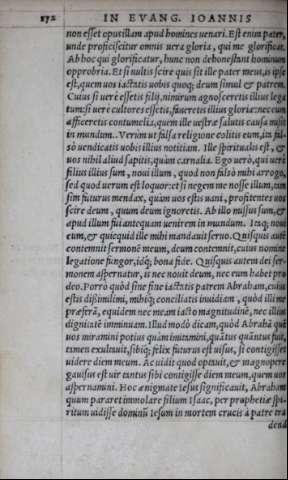 172 IN EVANG. IOANNIS
non esset opus illam apud homines uenari. Est enim pater,
unde proficiscitur omnis uera gloria, qui me glorificat.
Ab hoc qui glorificatur, hunc non dehonestant hominum
opprobria. Et si uultis scire quis sit ille pater meus, is ipse
est, quem uos iactatis uobis quoq; deum simul & patrem.
Cuius si uere essetis filij, nimirum agnosceretis illius lega
tum: si uere cultores essetis, faueretis illius gloriæ: nec eum
afficeretis contumelia, quem ille uestræ salutis causa misit
in mundum. Verùm ut falsa religione colitis eum, ita fal-
sò uendicatis uobis illius notitiam. Ille spiritualis est, &
uos nihil aliud sapitis, quàm carnalia. Ego uerò, qui uere
filius illius sum, noui illum, quod non falsò mihi arrogo,
sed quod uerum est loquor: et si negem me nosse illum, tam
sim futurus mendax, quàm uos estis uani, profitentes uos
scire deum, quem deum ignoretis. Ab illo missus sum, &
apud illum fui antequam uenirem in mundum. Itaq; noui
eum, & quicquid ille mihi mandauit seruo. Quisquis autē
contemnit sermonē meum, deum contemnit, cuius nomine
legatione fungor, idq; bona fide. Quisquis autem dei ser-
monem aspernatur, is nec nouit deum, nec eum habet pro
deo. Porrò quòd sine fine iactatis patrem Abraham, cuius
estis dissimilimi, mihiq; conciliatis inuidiam, quòd illi me
præferā, equidem nec meam iacto magnitudinē, nec illius
dignitatē imminuam. Illud modò dicam, quòd Abrahā quē
uos miramini potius quàm imitamini, quātus quātus fuit,
tamen exultauit, sibiq; felix futurus est uisus, si contigisset
uidere diem meum. Ac uidit quod optauit, & magnopere
gauisus est uir tantus sibi contigisse diem meum, quem uos
aspernamini. Hoc ænigmate Iesus significauit, Abraham
quum pararet immolare filium Isaac, per prophetiæ spi-
ritum uidisse dominū Iesum in mortem crucis à patre tra
dend